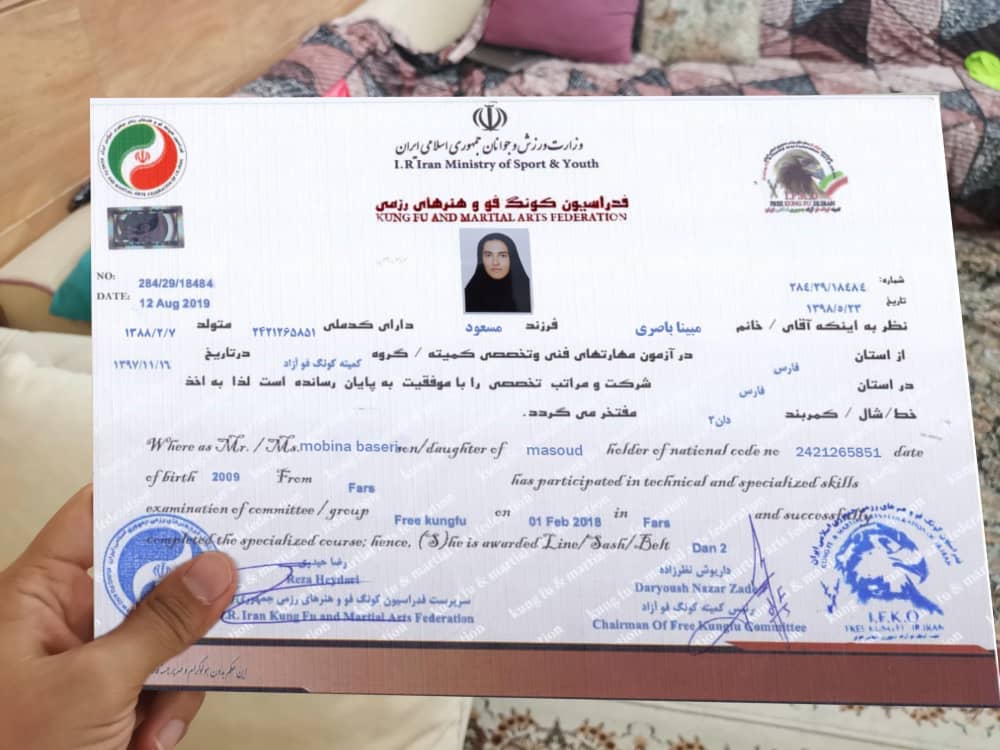 وزارت ورزش و جوانان جمهوری اسلامی ایران
I.R Iran Ministry of Sport & Youth
فدراسیون کونگ فو و هنرهای رزمی
KUNG FU AND MARTIAL ARTS FEDERATION
FREE KUNG FU IR.IRAN
NO: 284/29/18484
DATE: 12 Aug 2019
شماره: ۲۸۴/۲۹/۱۸۴۸۴
تاریخ ۱۳۹۸/۵/۲۳
نظر به اینکه آقای / خانم مبینا باصری فرزند مسعود دارای کدملی ۲۴۲۱۲۶۵۸۵۱ متولد ۱۳۸۸/۲/۷
از استان فارس در آزمون مهارتهای فنی وتخصصی کمیته / گروه کمیته کونگ فو آزاد درتاریخ ۱۳۹۷/۱۱/۱۶
در استان فارس شرکت و مراتب تخصصی را با موفقیت به پایان رسانده است لذا به اخذ
خط/ شال / کمربند دان۲ مفتخر می گردد.
Where as Mr. / Ms. mobina baseri son/daughter of masoud holder of national code no 2421265851 date
of birth 2009 From Fars has participated in technical and specialized skills
examination of committee / group Free kungfu on 01 Feb 2018 in Fars and successfully
completed the specialized course; hence, (S)he is awarded Line/Sash/Belt Dan 2
رضا حیدری
Reza Heydari
سرپرست فدراسیون کونگ فو و هنرهای رزمی
R. Iran Kung Fu and Martial Arts Federation
داریوش نظرزاده
Daryoush Nazar Zadeh
رئیس کمیته کونگ فو آزاد
Chairman Of Free Kungfu Committee
I.F.K.O
FREE KUNG FU IR.IRAN